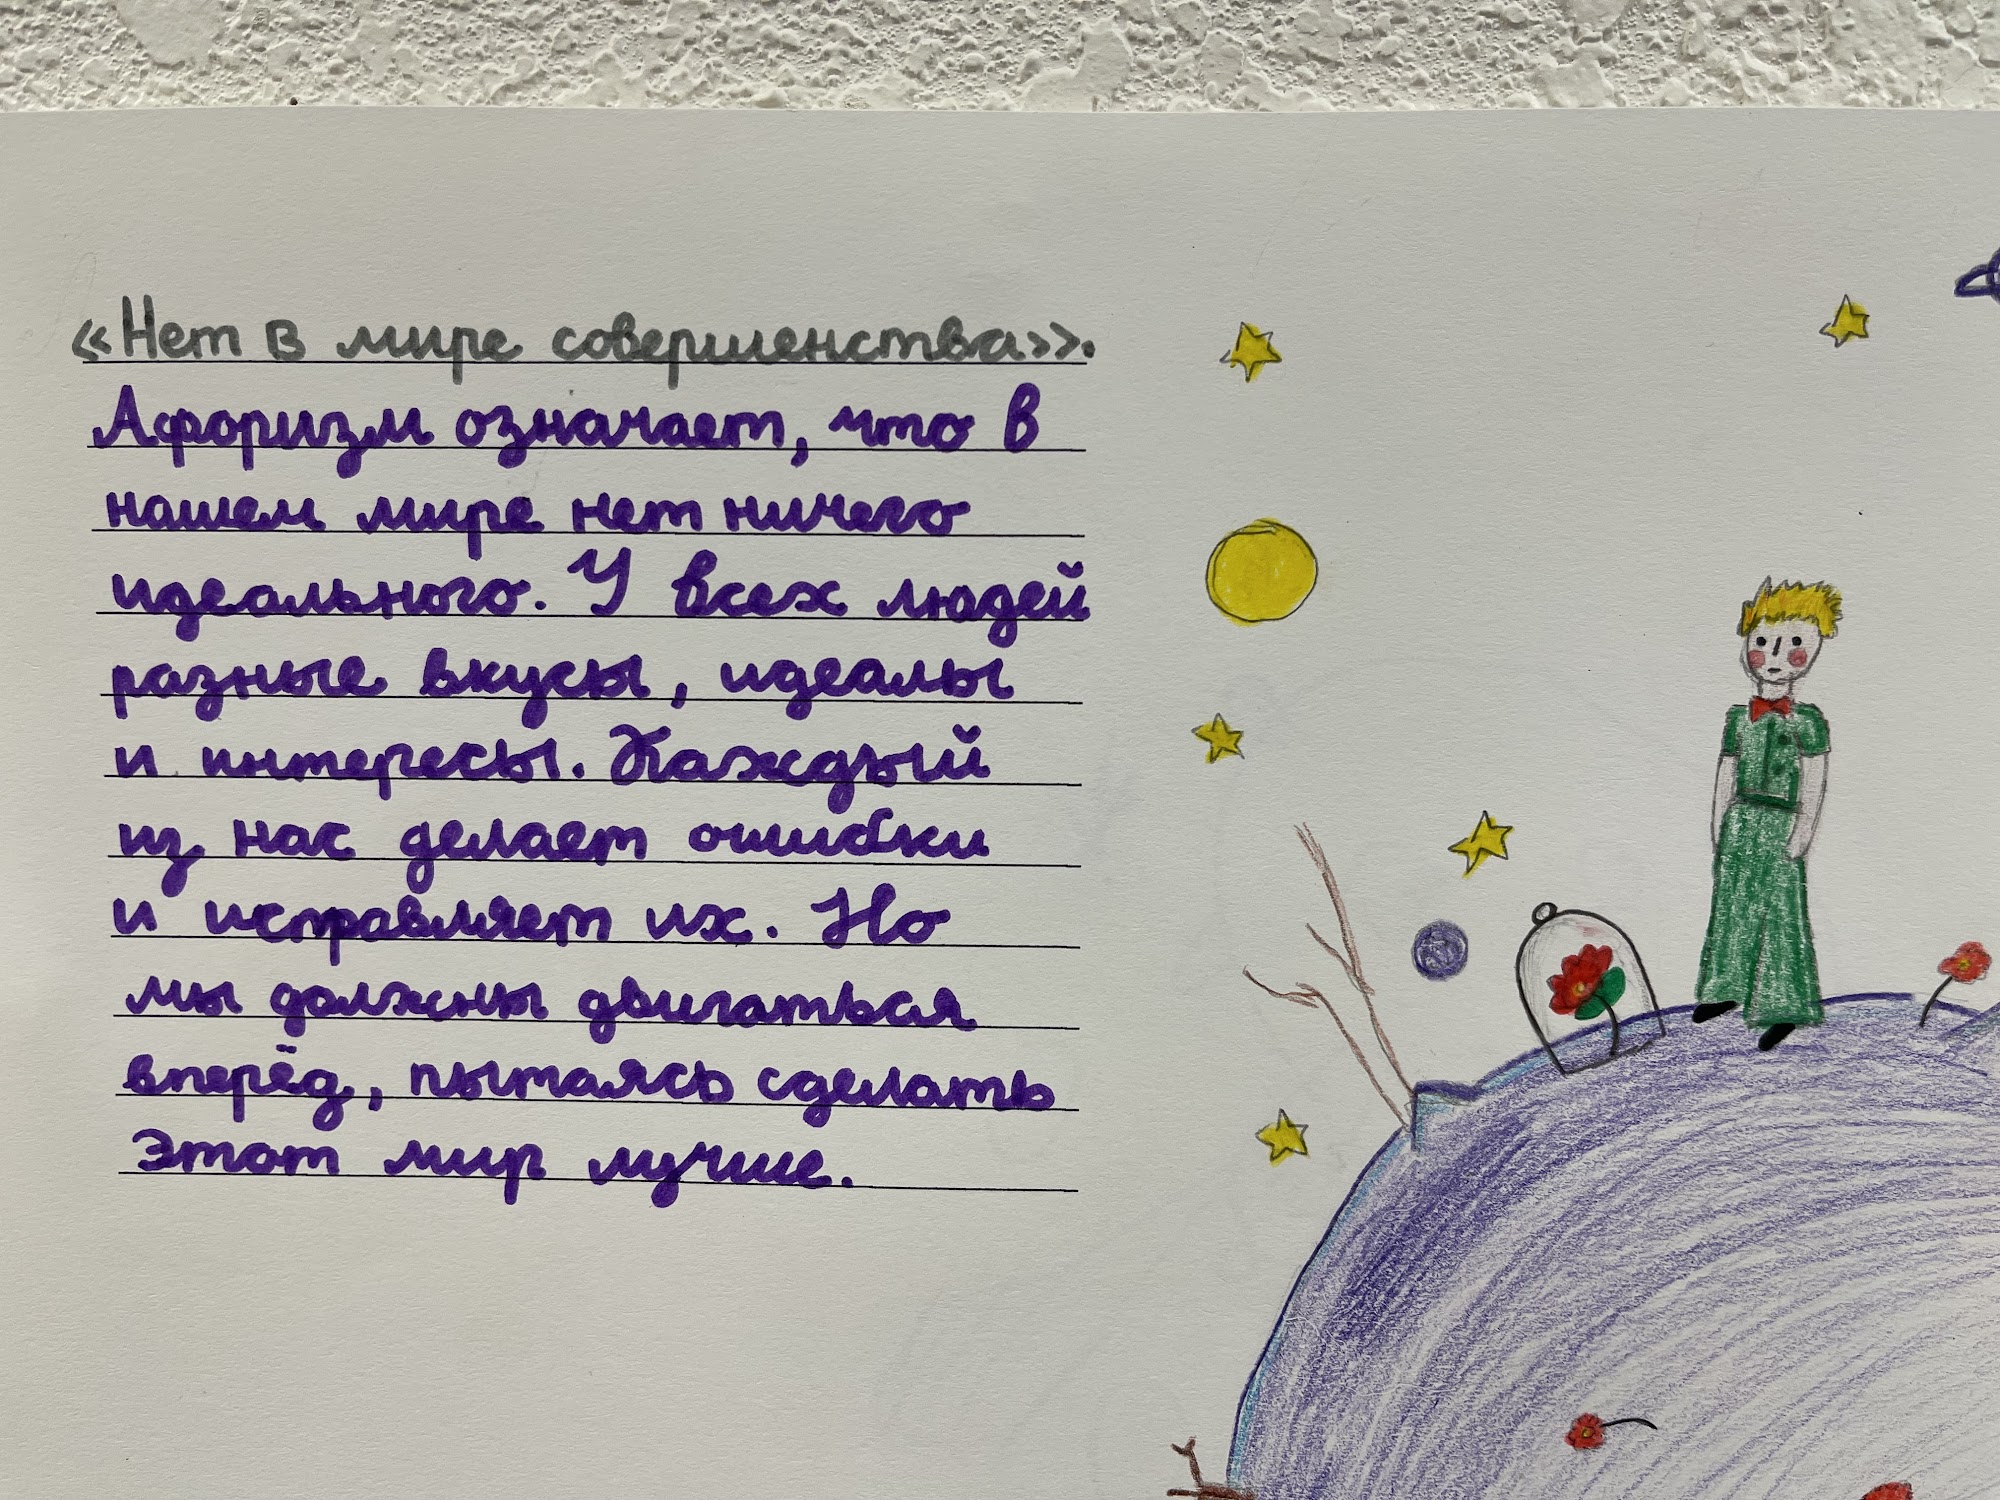 «Нет в мире совершенства».
Афоризм означает, что в
нашем мире нет ничего
идеального. У всех людей
разные вкусы, идеалы
и интересы. Каждый
из нас делает ошибки
и исправляет их. Но
мы должны двигаться
вперёд, пытаясь сделать
этот мир лучше.